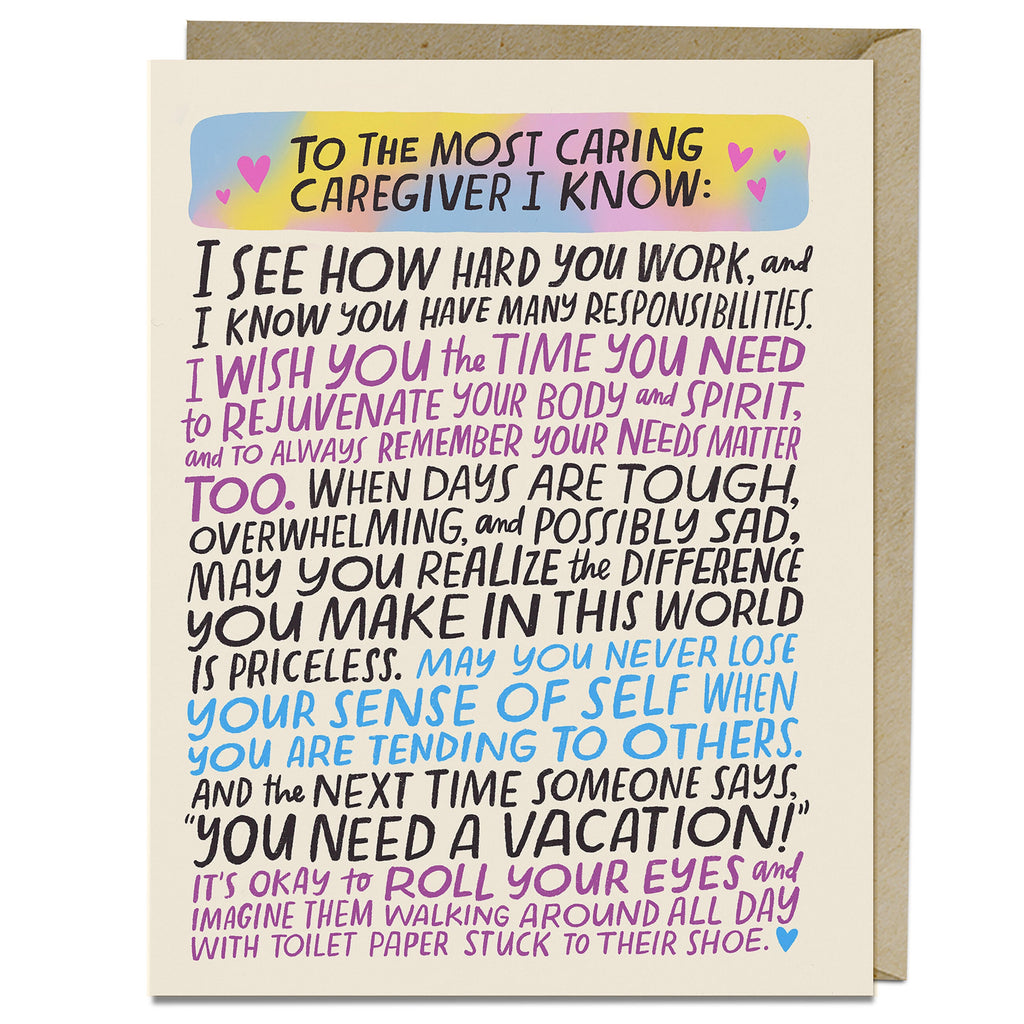 TO THE MOST CARING
CAREGIVER I KNOW:
I SEE HOW HARD YOU WORK, and
I KNOW YOU HAVE MANY RESPONSIBILITIES.
I WISH YOU the TIME YOU NEED
to REJUVENATE YOUR BODY and SPIRIT,
and TO ALWAYS REMEMBER YOUR NEEDS MATTER
TOO. WHEN DAYS ARE TOUGH,
OVERWHELMING, and POSSIBLY SAD,
MAY YOU REALIZE the DIFFERENCE
YOU MAKE IN THIS WORLD
IS PRICELESS. MAY YOU NEVER LOSE
YOUR SENSE OF SELF WHEN
YOU ARE TENDING TO OTHERS.
AND the NEXT TIME SOMEONE SAYS,
"YOU NEED A VACATION!"
IT'S OKAY to ROLL YOUR EYES and
IMAGINE THEM WALKING AROUND ALL DAY
WITH TOILET PAPER STUCK TO THEIR SHOE.